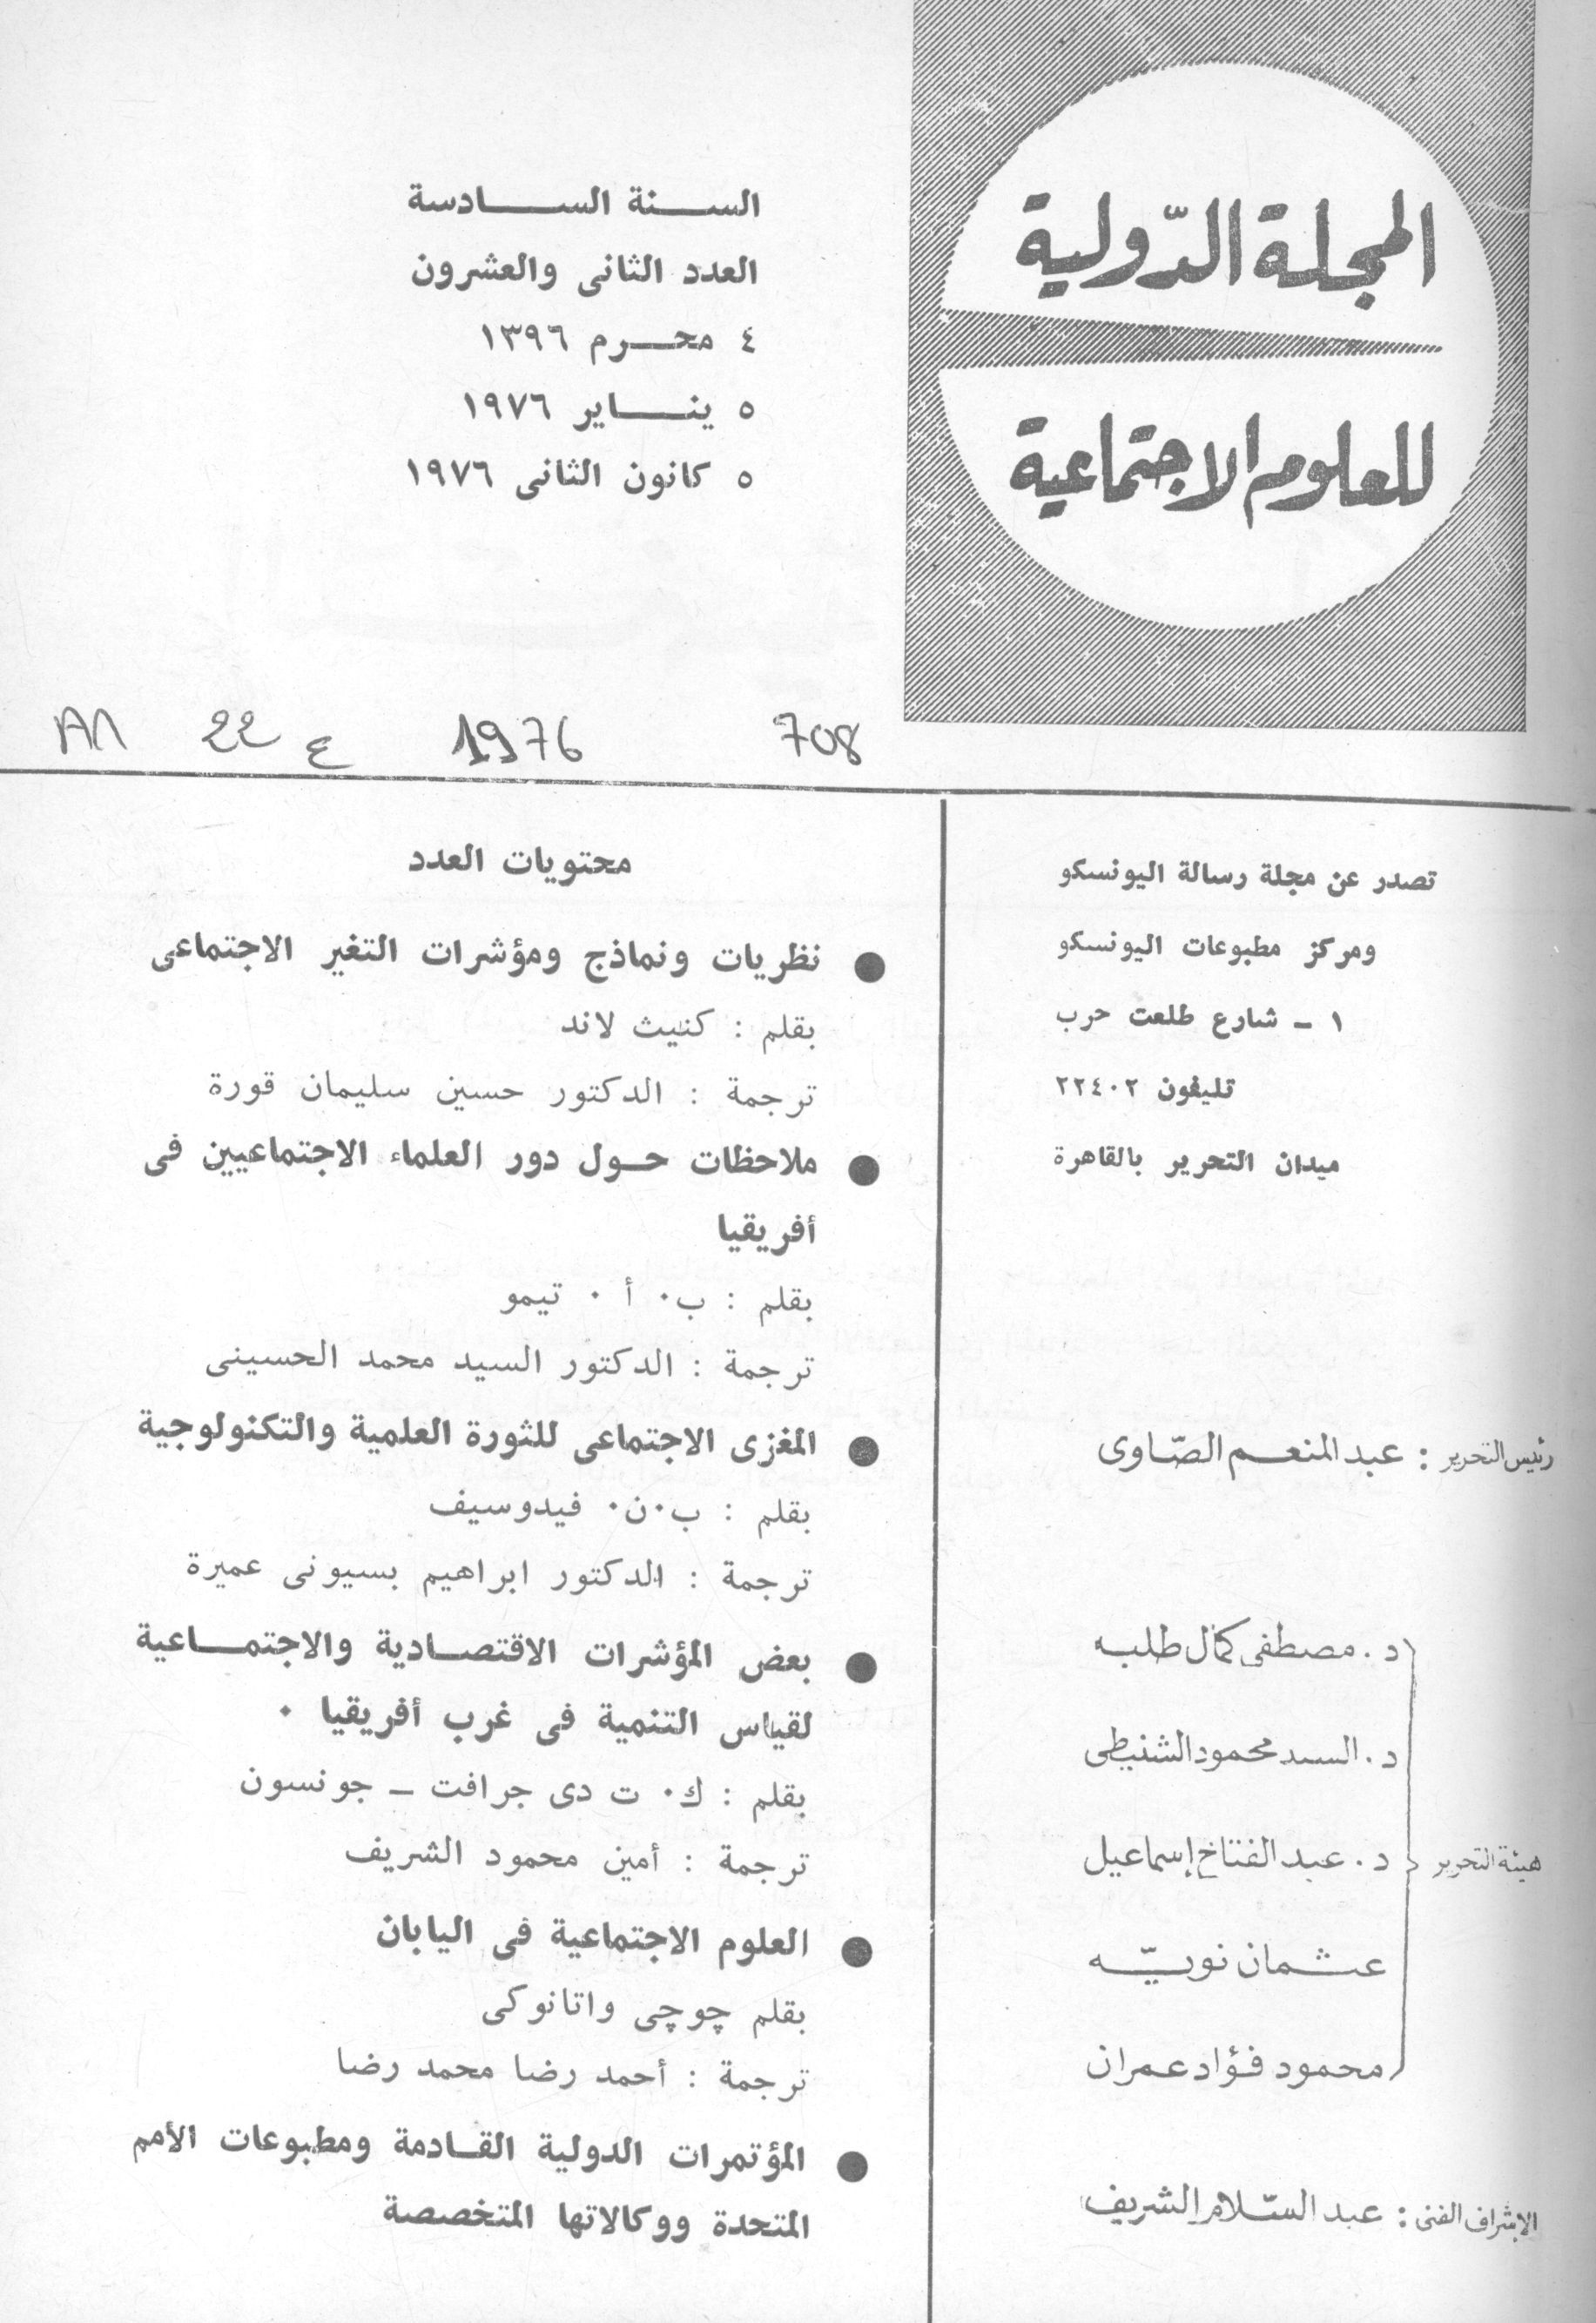 المجلة الدّولية
للعلوم الاجتماعية
السنة السادسة
العدد الثانى والعشرون
٤ محرم ١٣٩٦
٥ يناير ١٩٧٦
٥ كانون الثانى ١٩٧٦
708 1976 ع 22
تصدر عن مجلة رسالة اليونسكو
ومركز مطبوعات اليونسكو
١ - شارع طلعت حرب
تليفون ٢٢٤٠٢
ميدان التحرير بالقاهرة
رئيس التحرير : عبد المنعم الصّاوى
د. مصطفى كمال طلبه
د. السيد محمود الشنيطى
هيئة التحرير د. عبد الفتاح إسماعيل
عثمان نويّه
محمود فؤاد عمران
الإشراف الفنى : عبد السّلام الشريف
محتويات العدد
● نظريات ونماذج ومؤشرات التغير الاجتماعى
بقلم : كنيث لاند
ترجمة : الدكتور حسين سليمان قورة
● ملاحظات حول دور العلماء الاجتماعيين فى
أفريقيا
بقلم : ب٠ أ ٠ تيمو
ترجمة : الدكتور السيد محمد الحسينى
● المغزى الاجتماعى للثورة العلمية والتكنولوجية
بقلم : ب٠ن٠ فيدوسيف
ترجمة : الدكتور ابراهيم بسيونى عميرة
● بعض المؤشرات الاقتصادية والاجتماعية
لقياس التنمية فى غرب أفريقيا ٠
بقلم : ك٠ ت دى جرافت - جونسون
ترجمة : أمين محمود الشريف
● العلوم الاجتماعية فى اليابان
بقلم چوچى واتانوكى
ترجمة : أحمد رضا محمد رضا
● المؤتمرات الدولية القادمة ومطبوعات الأمم
المتحدة ووكالاتها المتخصصة